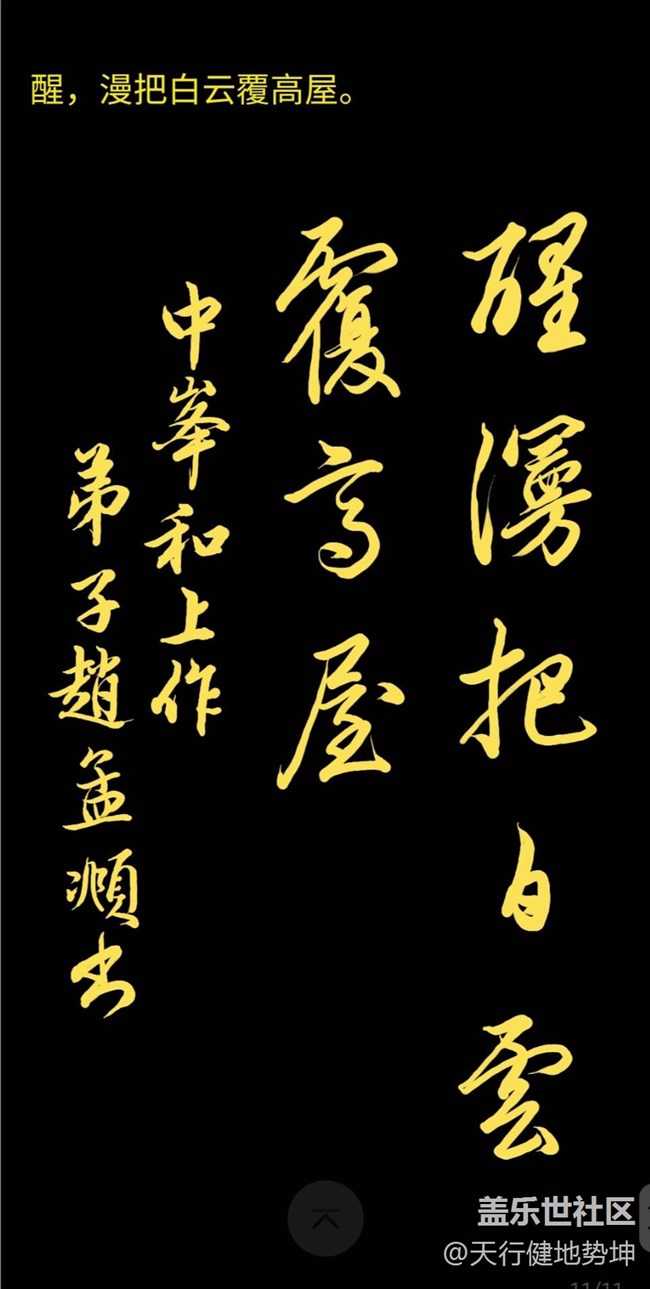 醒，漫把白云覆高屋。
醒漫把白雲
覆高屋
中峯和上作
弟子趙孟頫书
盖乐世社区
@天行健地势坤
11/11